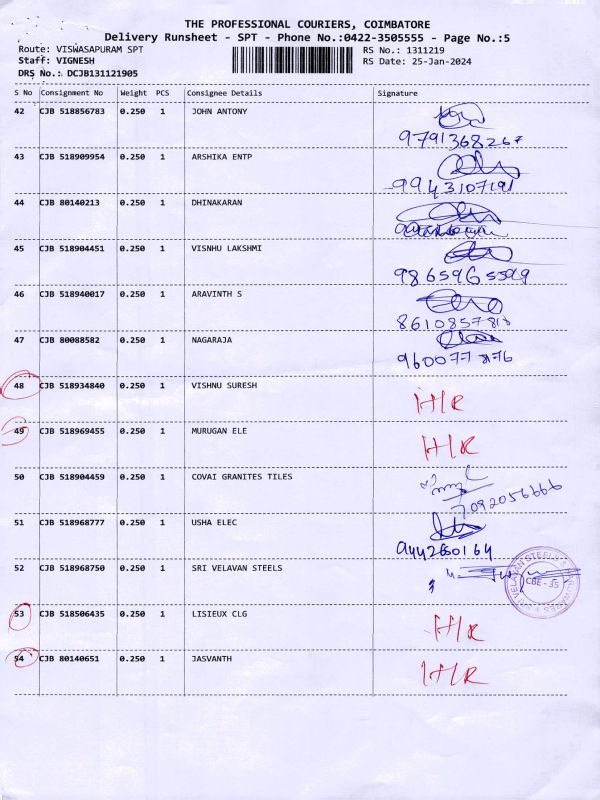 THE PROFESSIONAL COURIERS, COIMBATORE
Delivery Runsheet - SPT - Phone No.:0422-3505555 - Page No.:5
Route: VISWASAPURAM SPT RS No.: 1311219
Staff: VIGNESH RS Date: 25-Jan-2024
DRS No.: DCJB131121905
S No Consignment No Weight PCS Consignee Details Signature
42 CJB 518856783 0.250 1 JOHN ANTONY
9791368267
43 CJB 518909954 0.250 1 ARSHIKA ENTP
9943107191
44 CJB 80140213 0.250 1 DHINAKARAN
45 CJB 518904451 0.250 1 VISNHU LAKSHMI
9865965599
46 CJB 518940017 0.250 1 ARAVINTH S
8610857818
47 CJB 80088582 0.250 1 NAGARAJA
960077 8176
48 CJB 518934840 0.250 1 VISHNU SURESH H/R
49 CJB 518969455 0.250 1 MURUGAN ELE H/R
50 CJB 518904459 0.250 1 COVAI GRANITES TILES
7092056666
51 CJB 518968777 0.250 1 USHA ELEC
9442660164
52 CJB 518968750 0.250 1 SRI VELAVAN STEELS
CBE - 35
53 CJB 518506435 0.250 1 LISIEUX CLG H/R
54 CJB 80140651 0.250 1 JASVANTH H/R